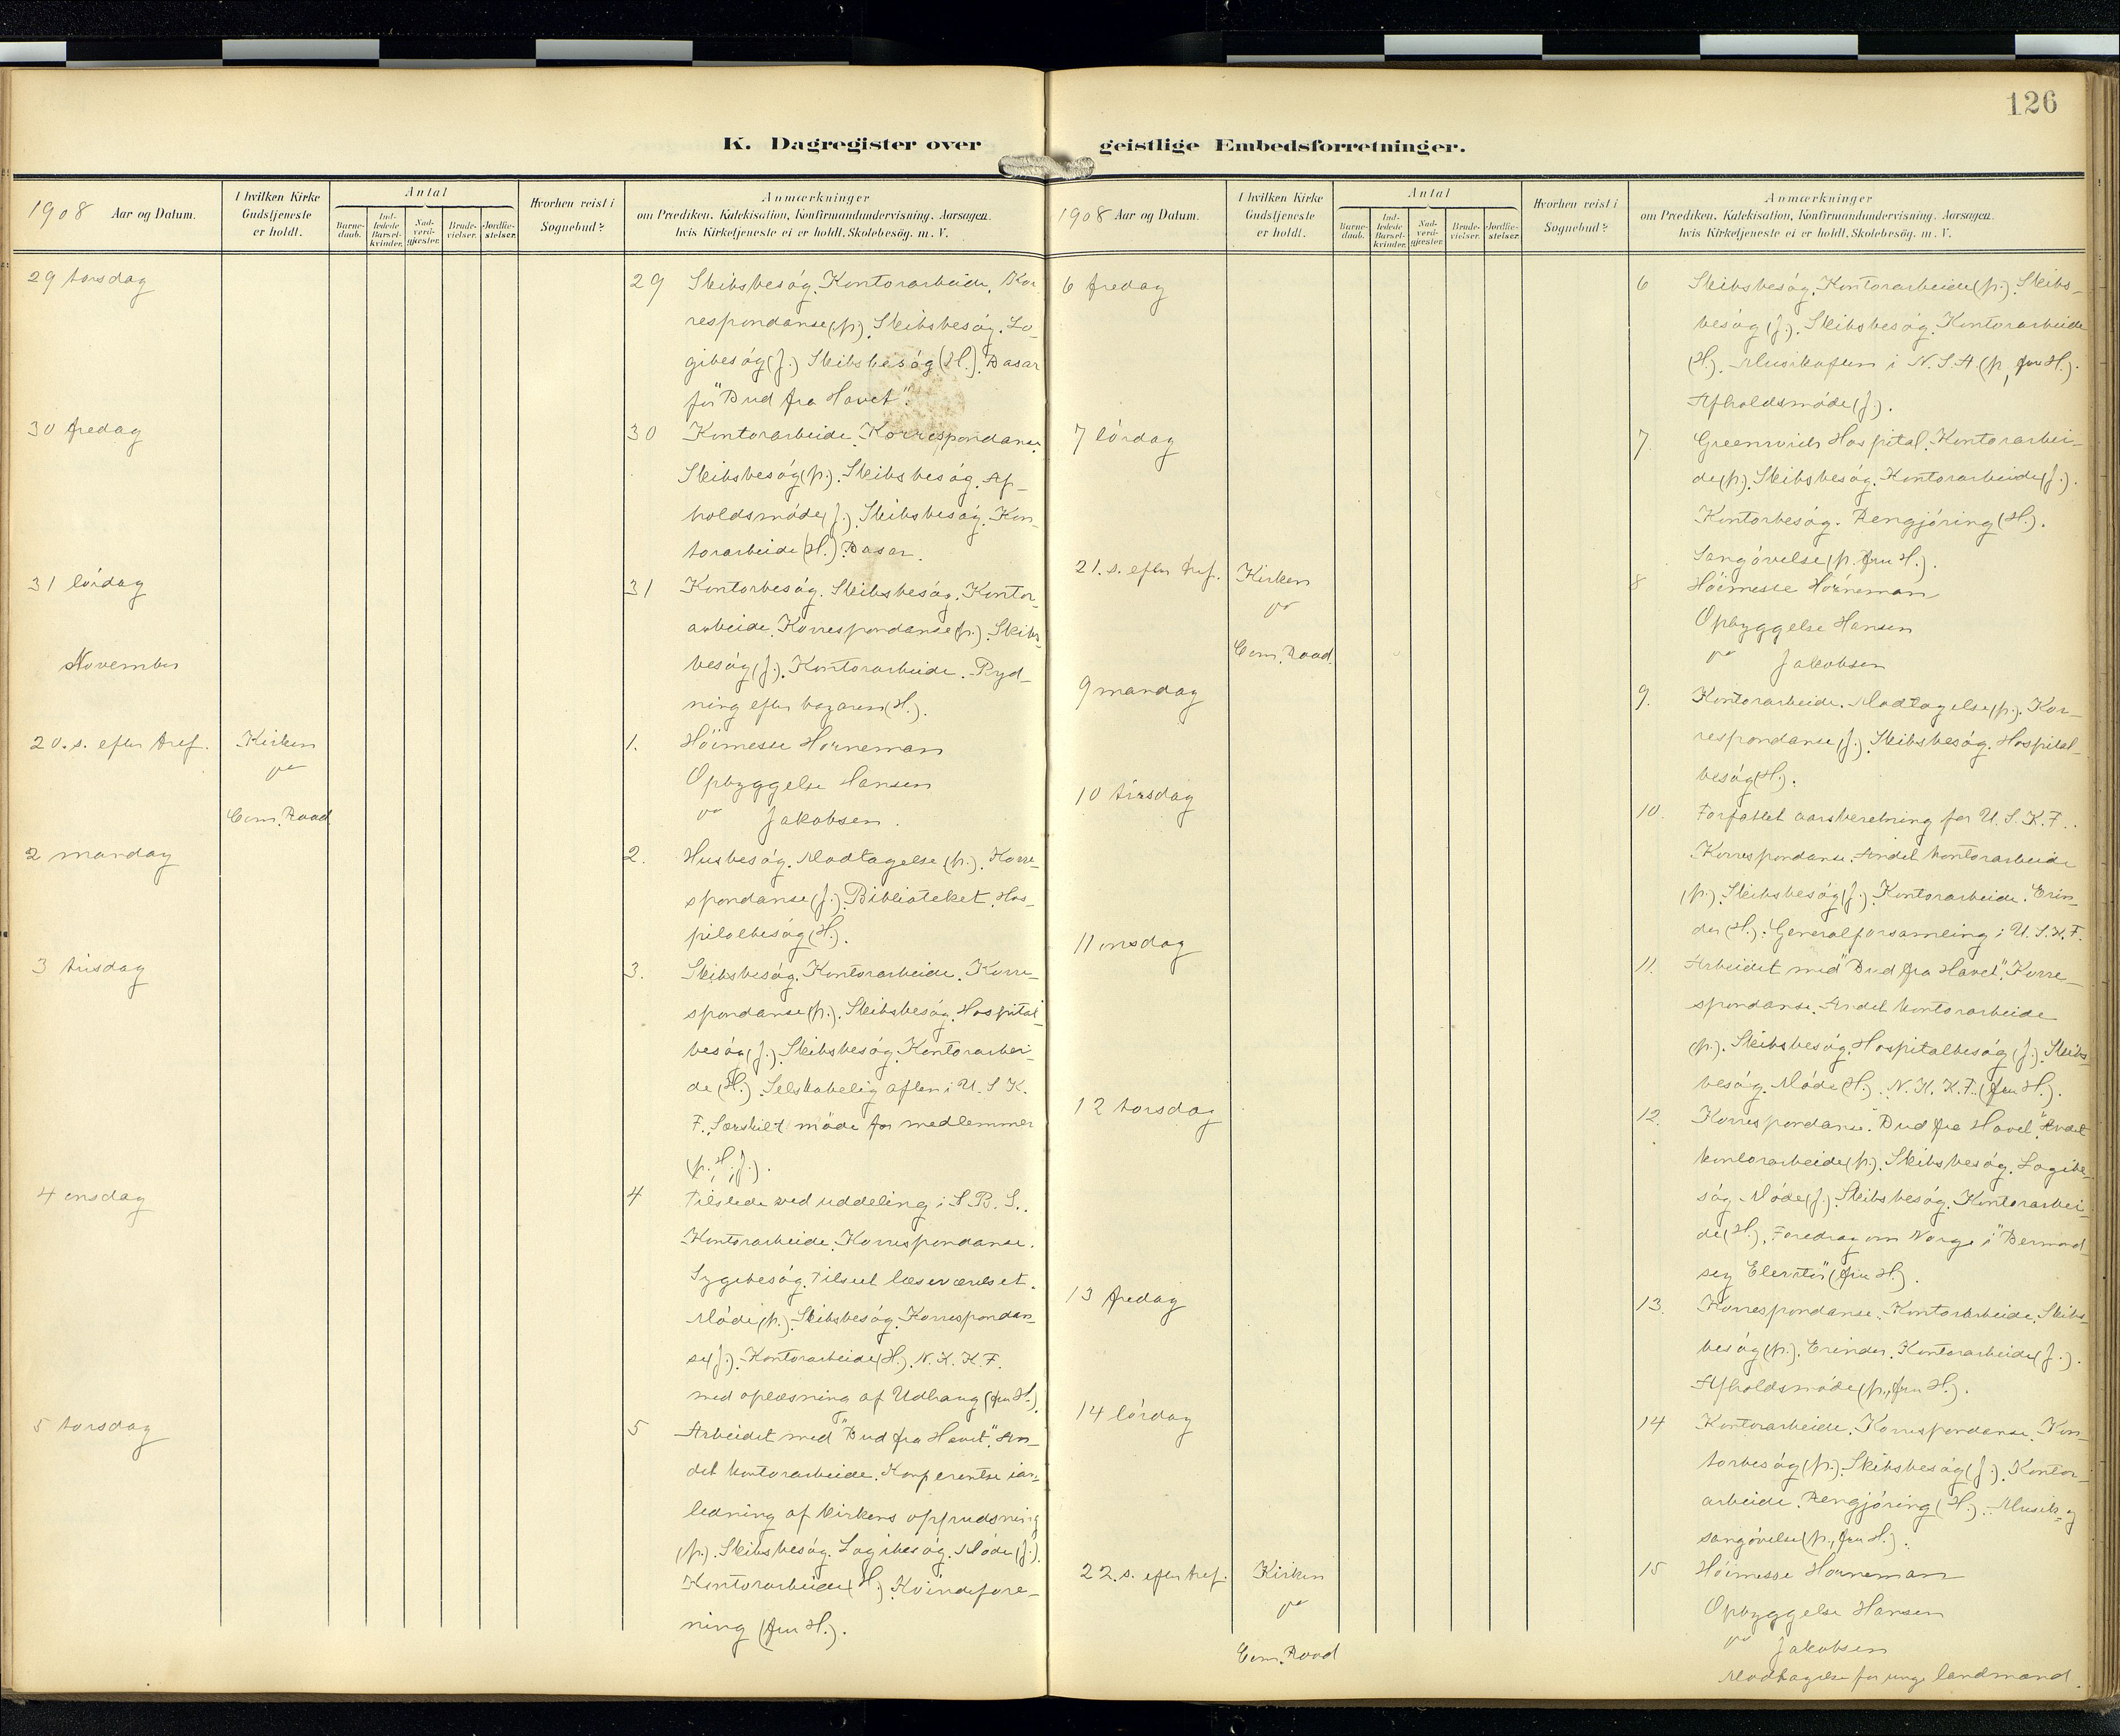 126
K. Dagregister over geistlige Embedsforretninger.
1908 Aar og Datum.
I hvilken Kirke Gudstjeneste er holdt.
Antal
Barnedaab.
Indledede Barselkvinder.
Nadverdgjester.
Brudevielser.
Jordfæstelser.
Hvorhen reist i Sognebud?
Anmærkninger
om Prædiken, Katekisation, Konfirmandundervisning, Aarsagen,
hvis Kirketjeneste ei er holdt, Skolebesög, m. V.
29 torsdag
29 Skibsbesög. Kontorarbeide. Kor
respondanse (p.). Skibsbesög. Lo
gibesög (J.) Skibsbesög (H.). Basar
for "Bud fra Havet".
30 fredag
30 Kontorarbeide. Korrespondanse.
Skibsbesög (p.). Skibsbesög. Af-
holdsmöde (J.). Skibsbesög. Kon-
torarbeide (H.). Basar.
31 lördag
31 Kontorbesög. Skibsbesög. Kontor-
arbeide. Korrespondanse (p.). Skibs-
besög (J.). Kontorarbeide. Ryd-
ning efter bazaren (H.).
November
20. s. efter tref. Kirken
1. Höimesse Horneman
Opbyggelse Hansen
Com. Road
Jakobsen.
2 mandag
2. Husbesög. Modtagelse (p.). Korre-
spondanse (J.). Biblioteket. Hos-
pitalbesög (H.).
3 tirsdag
3. Skibsbesög. Kontorarbeide. Korre-
spondanse (p.). Skibsbesög. Hospital-
besög (J.). Skibsbesög. Kontorarbei-
de (H.). Selskabelig aften i U. S. K.
F. Særskilt möde for medlemmer
(p., H., J.).
4 onsdag
4 Tilstede ved uddeling i S. B. S..
Kontorarbeide. Korrespondanse.
Sygebesög. Tilseet læseværelset.
Möde (p.). Skibsbesög. Korrespondan-
se (J.). Kontorarbeide (H.). N. K. K. F.
med oplæsning af Udhaug (fru H.).
5 torsdag
5 Arbeidet med "Bud fra Havet". An-
det kontorarbeide. Konferentse ian-
ledning af kirkens oppudsning
(p.). Skibsbesög. Logibesög. Möde (J.).
Kontorarbeide (H.). Kvindefore-
ning (fru H.).
1908 Aar og Datum.
I hvilken Kirke Gudstjeneste er holdt.
Antal
Barnedaab.
Indledede Barselkvinder.
Nadverdgjester.
Brudevielser.
Jordfæstelser.
Hvorhen reist i Sognebud?
Anmærkninger
om Prædiken, Katekisation, Konfirmandundervisning, Aarsagen,
hvis Kirketjeneste ei er holdt, Skolebesög, m. V.
6 fredag
6 Skibsbesög. Kontorarbeide (p.). Skibs-
besög (J.). Skibsbesög. Kontorarbeide
(H.). Musikaften i N. S. H. (p, fru H.).
Afholdsmöde (J.).
7 lördag
7. Greenwich Hospital. Kontorarbei-
de (p.). Skibsbesög. Kontorarbeide (J.).
Kontorbesög. Rengjöring (H.).
Sangövelse (p. fru H.).
21. s. efter tref. Kirken
8 Höimesse Horneman
Opbyggelse Hansen
Com. Road.
Jakobsen
9 mandag
9. Kontorarbeide. Modtagelse (p.). Kor-
respondanse (J.). Skibsbesög. Hospital-
besög (H.).
10 tirsdag
10. Forfattet aarsberetning for U. S. K. F..
Korrespondanse. Andet kontorarbeide
(p.). Skibsbesög (J.). Kontorarbeide. Erin-
der (H.). Generalforsamling i U. S. K. F.
11 onsdag
11. Arbeidet med "Bud fra Havet". Korre-
spondanse. Andet kontorarbeide
(p.). Skibsbesög. Hospitalbesög (J.). Skibs-
besög. Möde (H.). N. K. K. F. (fru H.).
12 torsdag
12. Korrespondanse. "Bud fra Havet". Andet
kontorarbeide (p.). Skibsbesög. Logibe-
sög. Möde (J.). Skibsbesög. Kontorarbei-
de (H.). Foredrag om Norge i "Bermond-
sey (fru H.).
13 fredag
13. Korrespondanse. Kontorarbeide. Skibs-
besög (p.). Erinder. Kontorarbeide (J.).
Afholdsmöde (p., fru H.).
14 lördag
14 Kontorarbeide. Korrespondanse. Kon-
torbesög (p.). Skibsbesög (J.). Kontor-
arbeide. Rengjöring (H.). Musik- og
sangövelse (p., fru H.).
22. s. efter tref. Kirken
15 Höimesse Horneman
Opbyggelse Hansen
Com. Road
Jakobsen
Modtagelse for unge landmænd.